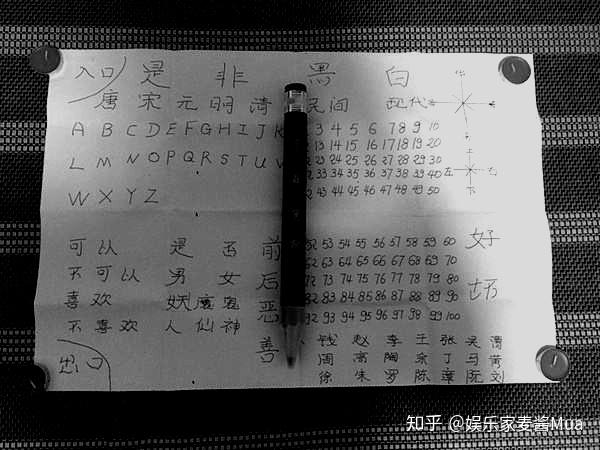 入口 是 非 黑 白
唐 宋 元 明 清 民间 现代
A B C D E F G H I J K 3 4 5 6 7 8 9 10
13 14 15 16 17 18 19 20
L M N O P Q R S T U V 23 24 25 26 27 28 29 30
左 右
33 34 35 36 37 38 39 40
下
W X Y Z 43 44 45 46 47 48 49 50
可以 是 否 前 52 53 54 55 56 57 58 59 60 好
62 63 64 65 66 67 68 69 70
不可以 男 女 后 72 73 74 75 76 77 78 79 80 坏
喜欢 妖 魔 鬼 恶 82 83 84 85 86 87 88 89 90
不喜欢 人 仙 神 92 93 94 95 96 97 98 99 100
善 钱 赵 李 王 张 吴
出口 周 高 陶 余 丁 马 黄
徐 朱 罗 陈 章 阮 刘
知乎 @娱乐家麦酱Mua